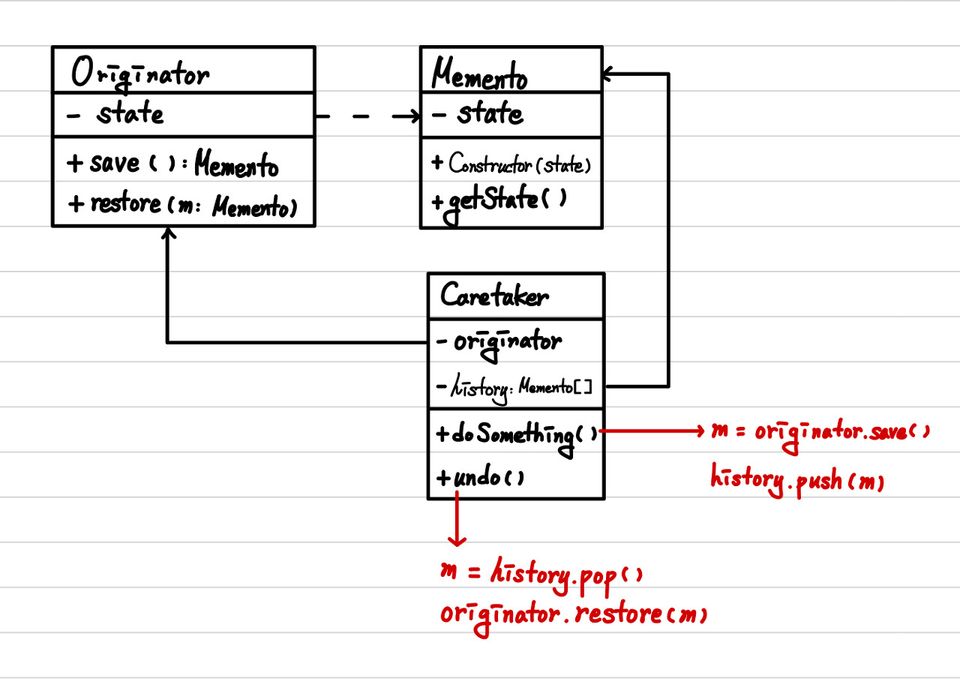 Originator
- state
+ save ( ) : Memento
+ restore (m: Memento)
Memento
- state
+ Constructor (state)
+ getState( )
Caretaker
- originator
- history: Memento[]
+ doSomething( )
+ undo( )
m = originator.save( )
history.push(m)
m = history.pop( )
originator.restore(m)